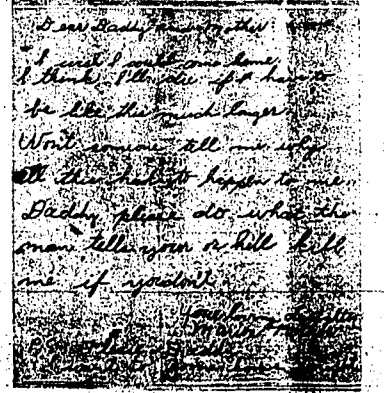 Dear Daddy and Mother
I wish I were home
I think I'll die if I have to
be like this much longer
Won't someone tell me why
all this had to happen to me.
Daddy please do what the
man tells you or he'll kill
me if you don't
Your loving
P.S.